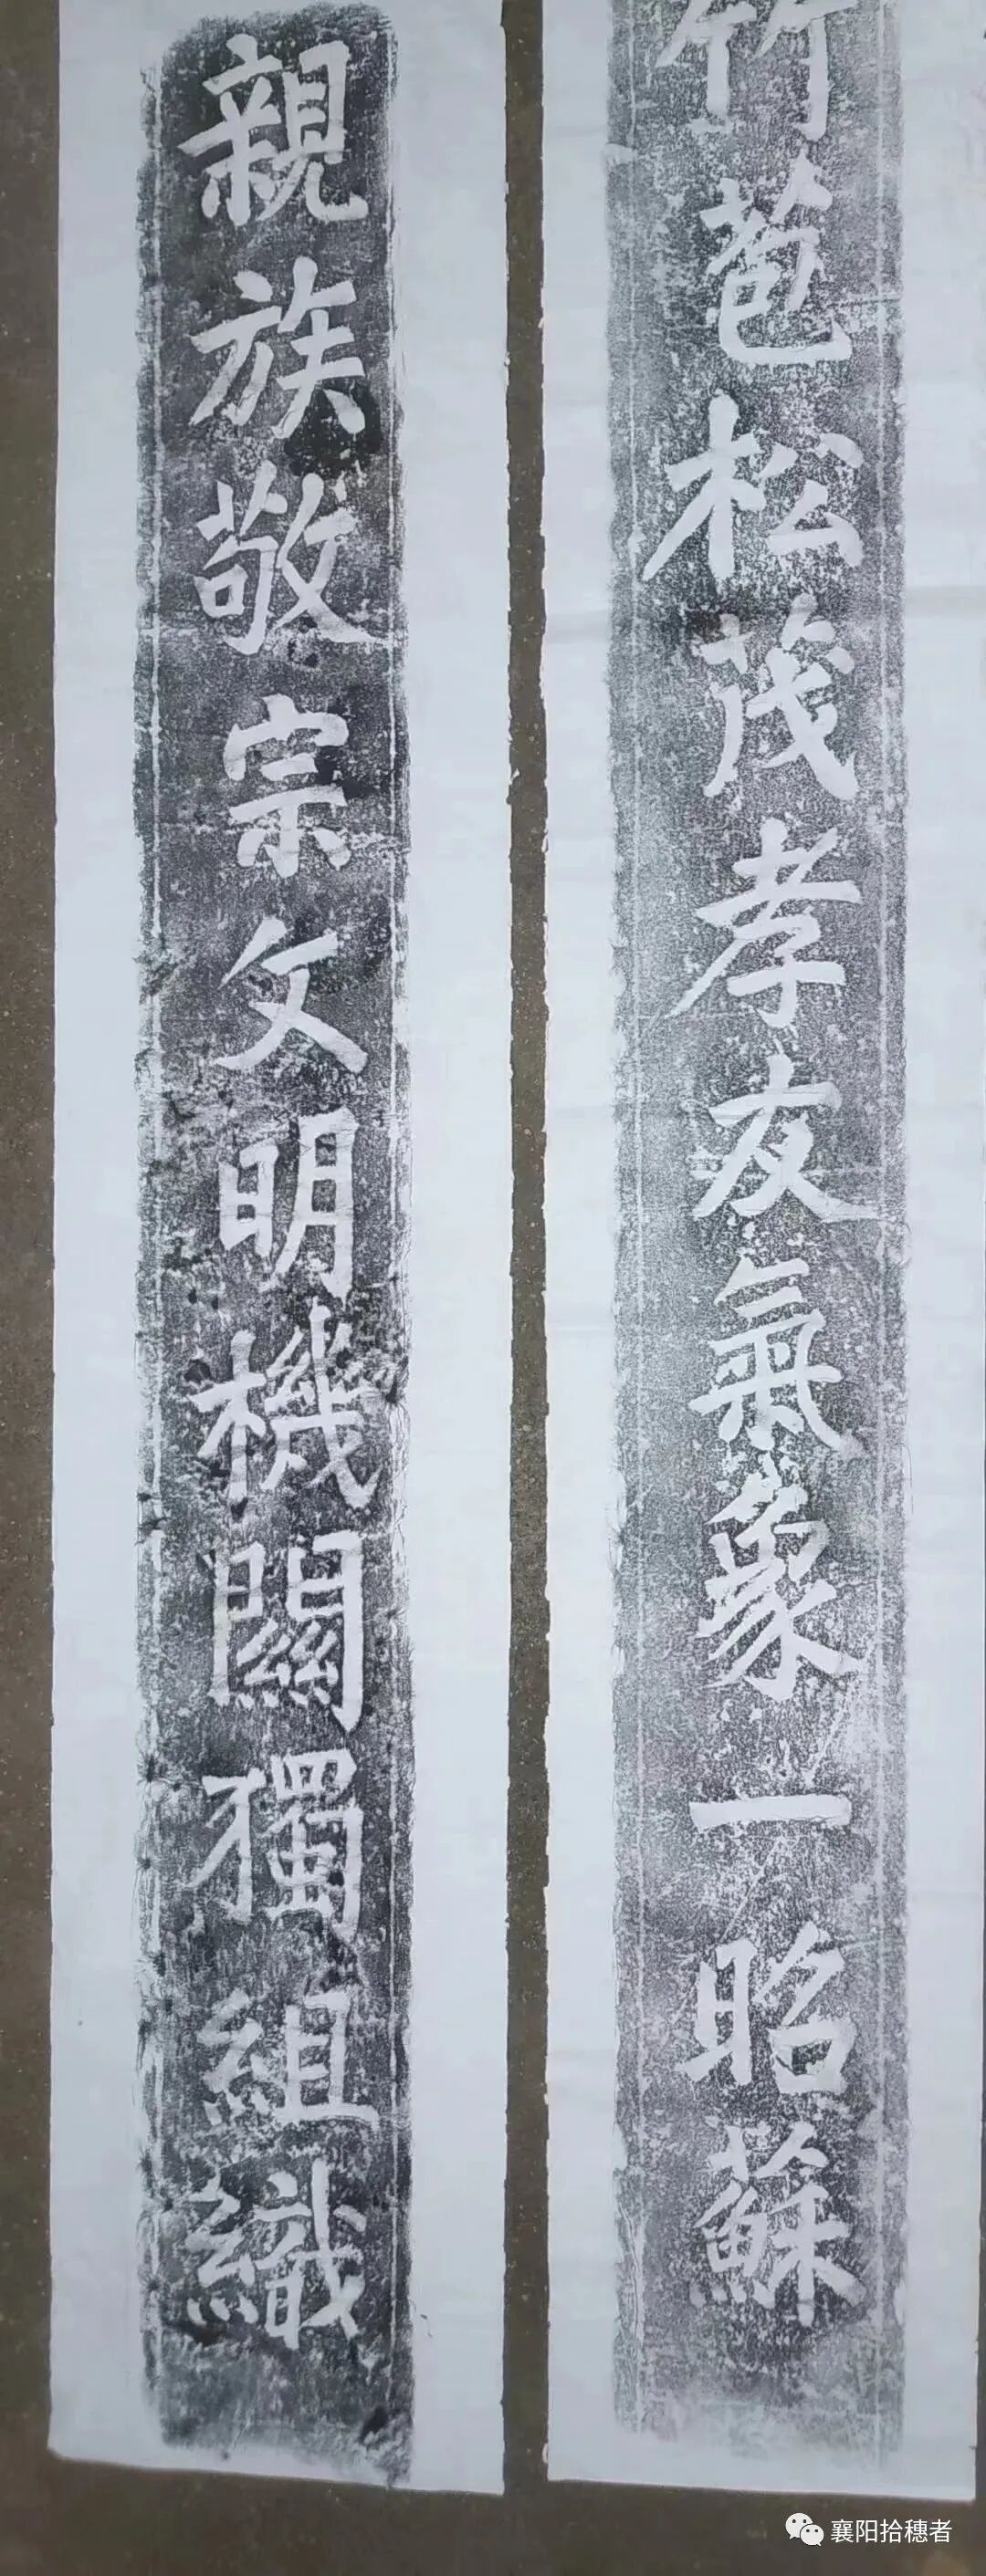 竹苞松茂孝友氣象一昭蘇
親族敬宗文明機關獨組織
襄阳拾穗者